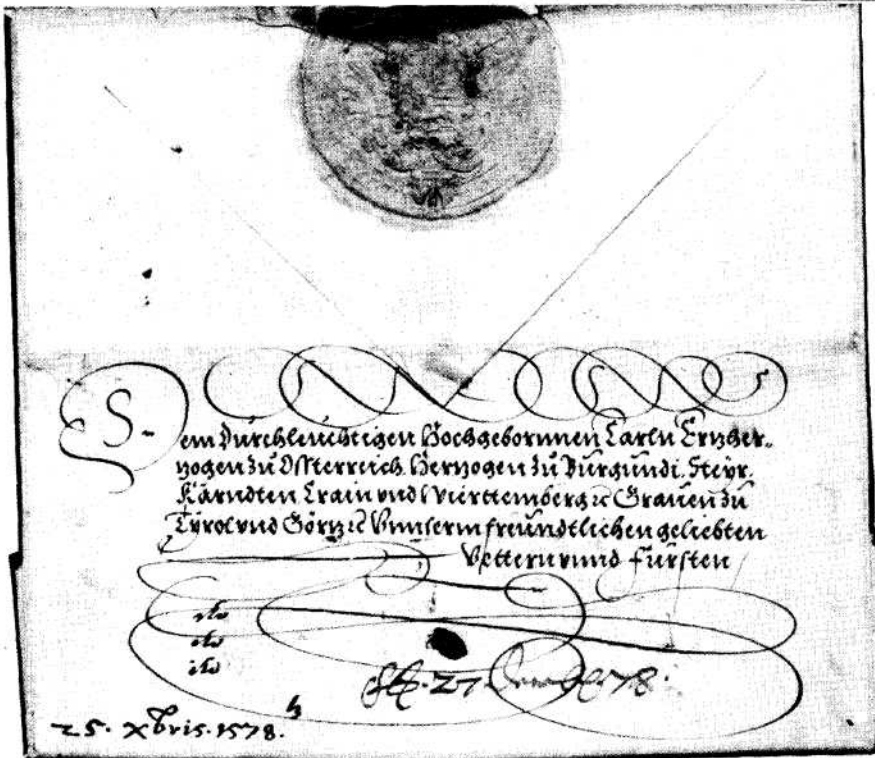 Dem Durchleuchtigen Hochgebornnen Carln Ertzher-
tzogen zu Össterreich Hertzogen zu Burgundi. Steyr.
Kärndten Crain vnd Württemberg ꝛc Grauen zu
Tyrol vnd Görtz ꝛc Vnnserm freundtlichen geliebten
Vettern vnnd Fürsten
cito
cito
cito
27. 1578.
25. Xbris. 1578.